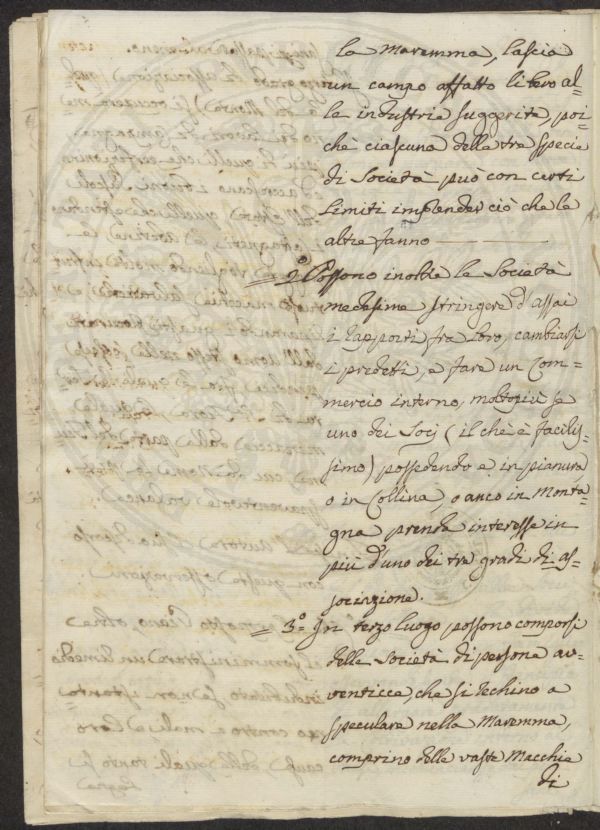 la Maremma, lascia
un campo affatto libero al=
le industrie suggerite, poi
chè ciascuna delle tre specie
di Società può con certi
limiti imprender ciò che le
altre fanno
2.° Possono inoltre le Società
medesime stringere d'assai
i rapporti fra loro, cambiarsi
i predetti, e fare un Com=
mercio interno, moltopiù se
uno dei Socj (il chè è facilis=
simo) possedendo e in pianura,
o in Collina, o anco in Monta=
gna prenda interesse in
più d'uno dei tre gradi di as=
sociazione.
= 3.° In terzo luogo possono comporsi
delle Società di persone av=
venticce, che si rechino a
speculare nella Maremma,
comprino delle vaste Macchie
di